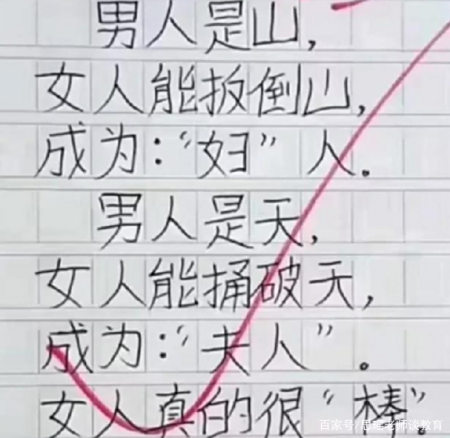 男人是山,
女人能扳倒山,
成为:“妇”人.
男人是天,
女人能捅破天,
成为:“夫人”.
女人真的很“棒”.
百家号/思唯老师谈教育